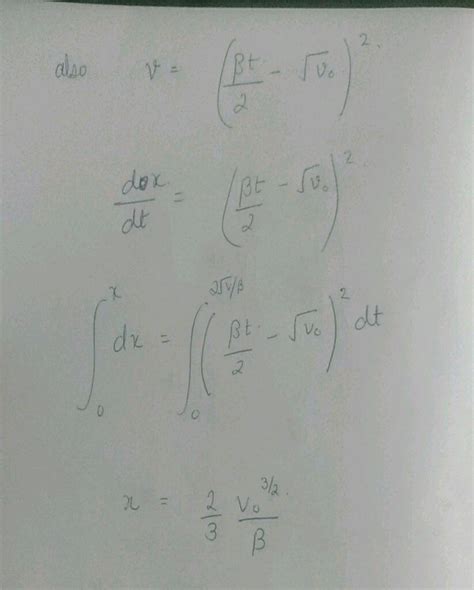 also v = (βt/2 - √v₀)².
dx/dt = (βt/2 - √v₀)².
∫₀ˣ dx = ∫₀^(2√v/β) (βt/2 - √v₀)² dt
x = 2/3 v₀^(3/2)/β